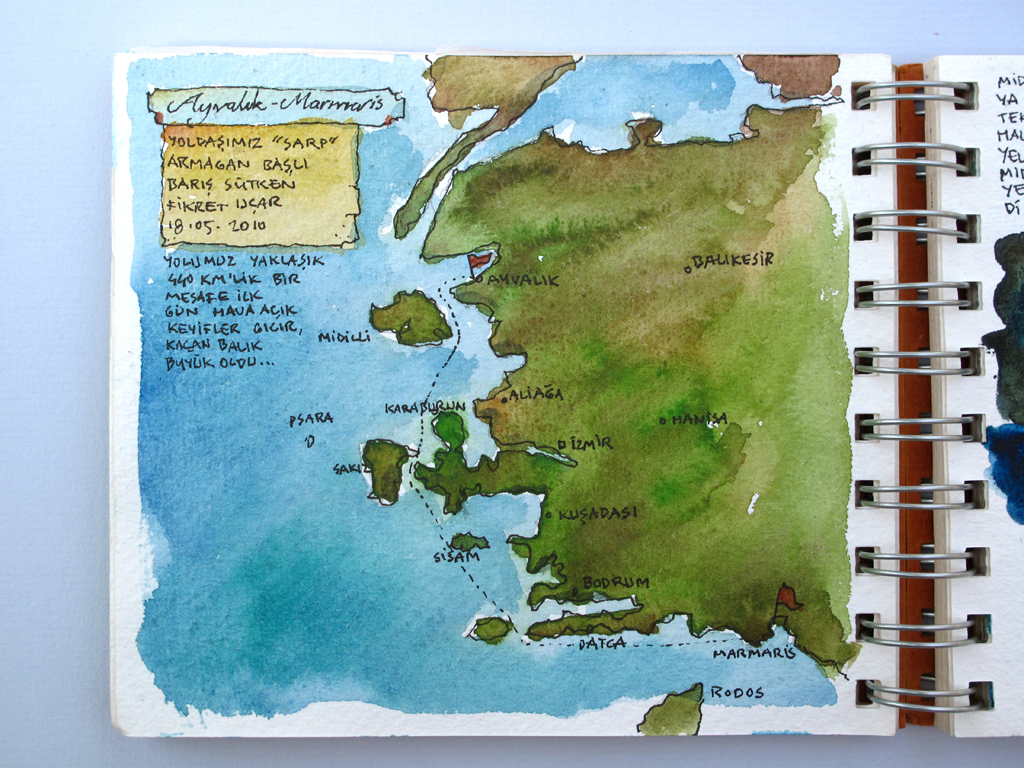 Ayvalık-Marmaris
YOLDAŞIMIZ "SARP"
ARMAĞAN BAŞLI
BARIŞ SÜTKEN
FİKRET UÇAR
18.05.2010
YOLUMUZ YAKLAŞIK
440 KM'LİK BİR
MESAFE İLK
GÜN HAVA AÇIK
KEYİFLER GICIR,
KAÇAN BALIK
BÜYÜK OLDU...
BALIKESİR
AYVALIK
MİDİLLİ
ALİAĞA
KARABURUN
PSARA
MANİSA
İZMİR
SAKIZ
KUŞADASI
SİSAM
BODRUM
DATÇA
MARMARİS
RODOS
MİD
YA
TEK
HAL
YEL
MİD
YE
Dİ